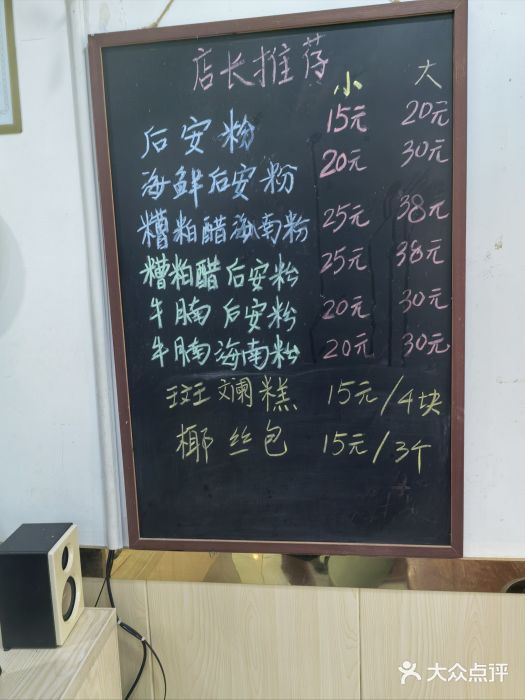 店长推荐 小 大
后安粉 15元 20元
海鲜后安粉 20元 30元
糟粕醋海南粉 25元 38元
糟粕醋后安粉 25元 38元
牛腩后安粉 20元 30元
牛腩海南粉 20元 30元
斑斓糕 15元/4块
椰丝包 15元/3个
大众点评